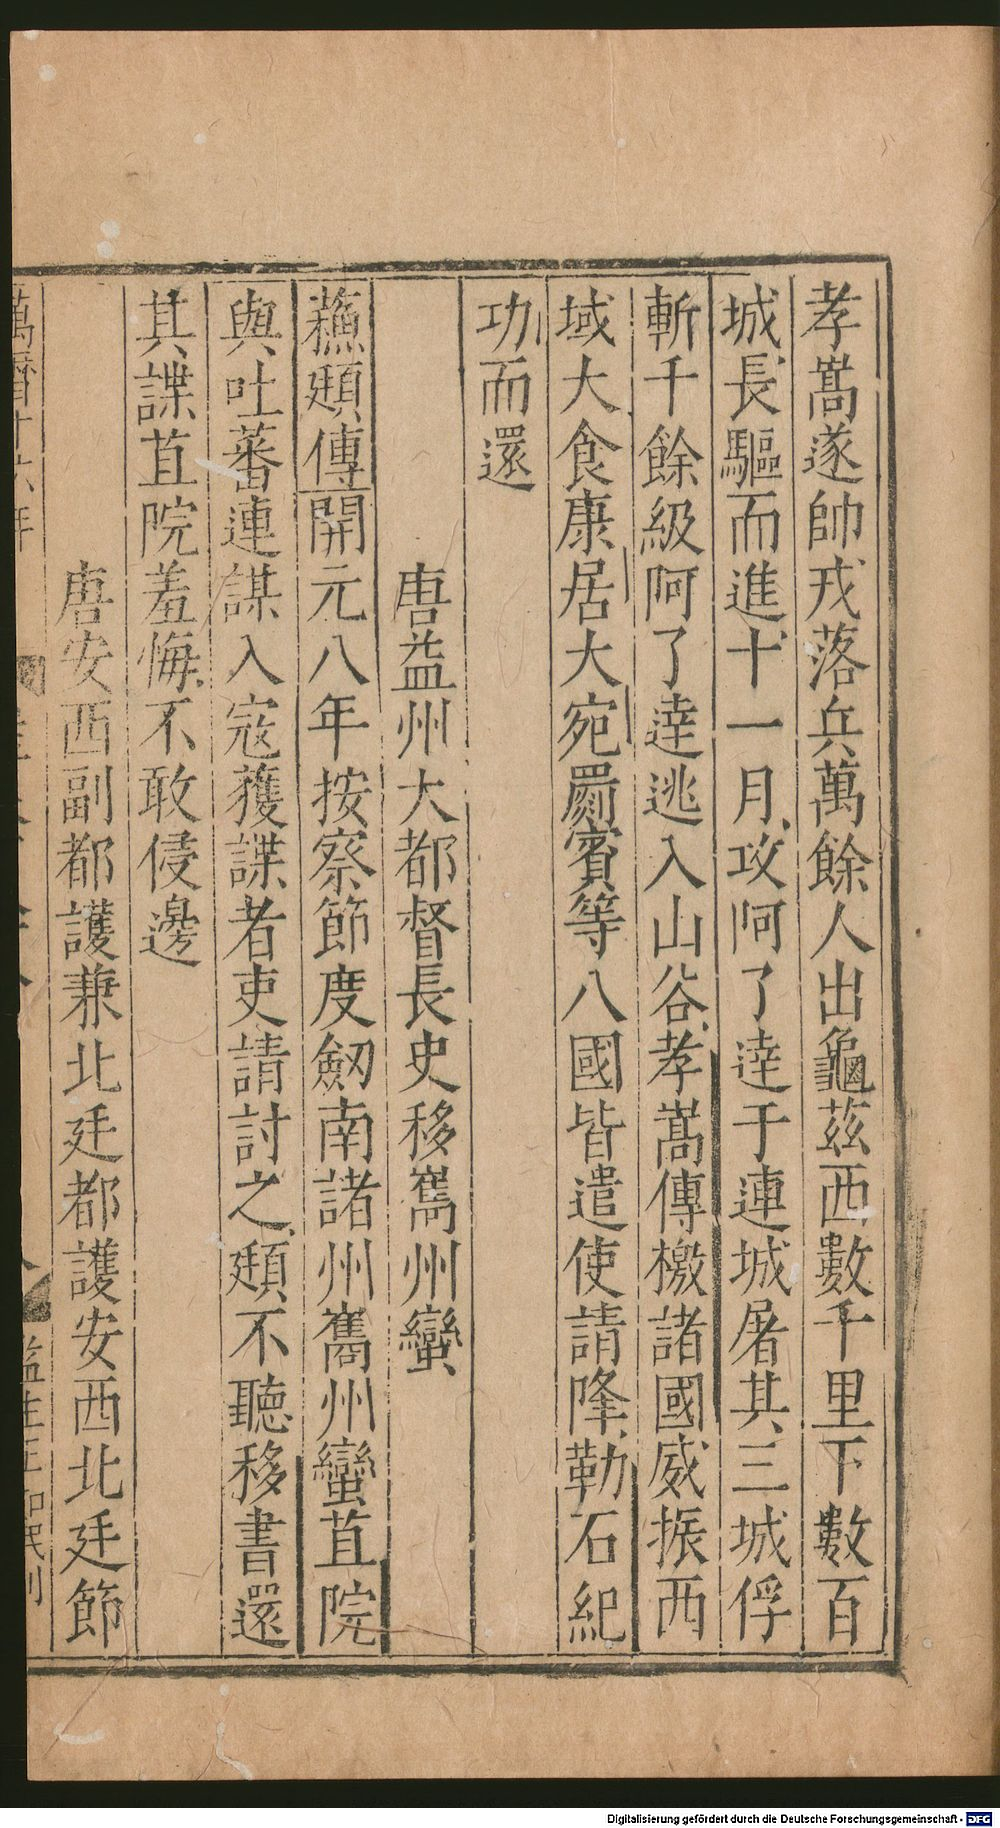 孝嵩遂帥戎落兵萬餘人出龜茲西數千里下數百
城長驅而進十一月攻阿了達于連城屠其三城俘
斬千餘級阿了達逃入山谷孝嵩傳檄諸國威振西
域大食康居大宛罽賓等八國皆遣使請降勒石紀
功而還
唐益州大都督長史移巂州蠻
蘇頲傳開元八年按察節度劒南諸州巂州蠻苴院
與吐蕃連謀入寇獲諜者吏請討之頲不聽移書還
其諜苴院羞悔不敢侵邊
唐安西副都護兼北廷都護安西北廷節
萬曆十六年
監生王和民刊
Digitalisierung gefördert durch die Deutsche Forschungsgemeinschaft - DFG